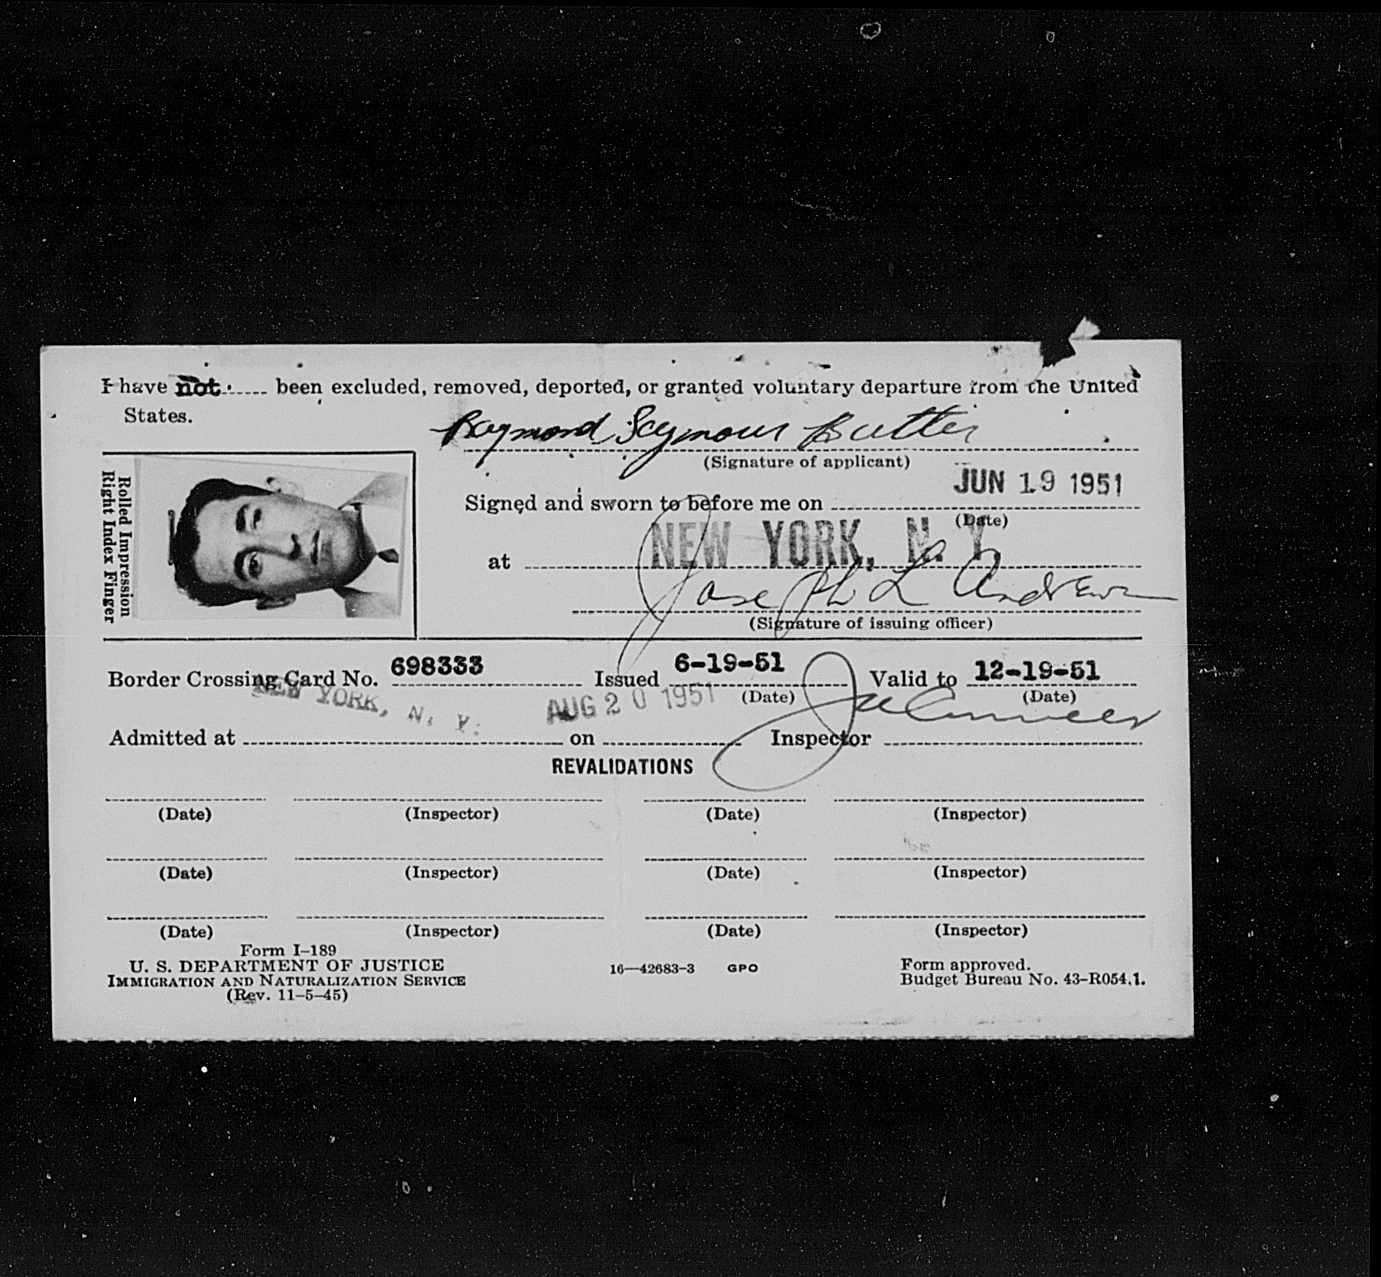 I have not. been excluded, removed, deported, or granted voluntary departure from the United
States.
Raymond Seymour Butler
(Signature of applicant)
Rolled Impression
Right Index Finger
Signed and sworn to before me on JUN 19 1951
(Date)
at NEW YORK, N. Y.
Joseph L Andrews
(Signature of issuing officer)
Border Crossing Card No. 698333 Issued 6-19-51 Valid to 12-19-51
(Date) (Date)
NEW YORK, N. Y. AUG 20 1951
Admitted at on Inspector
REVALIDATIONS
(Date) (Inspector) (Date) (Inspector)
(Date) (Inspector) (Date) (Inspector)
(Date) (Inspector) (Date) (Inspector)
Form I-189
U. S. DEPARTMENT OF JUSTICE
IMMIGRATION AND NATURALIZATION SERVICE
(Rev. 11-5-45)
16—42683-3 GPO
Form approved.
Budget Bureau No. 43-R054.1.